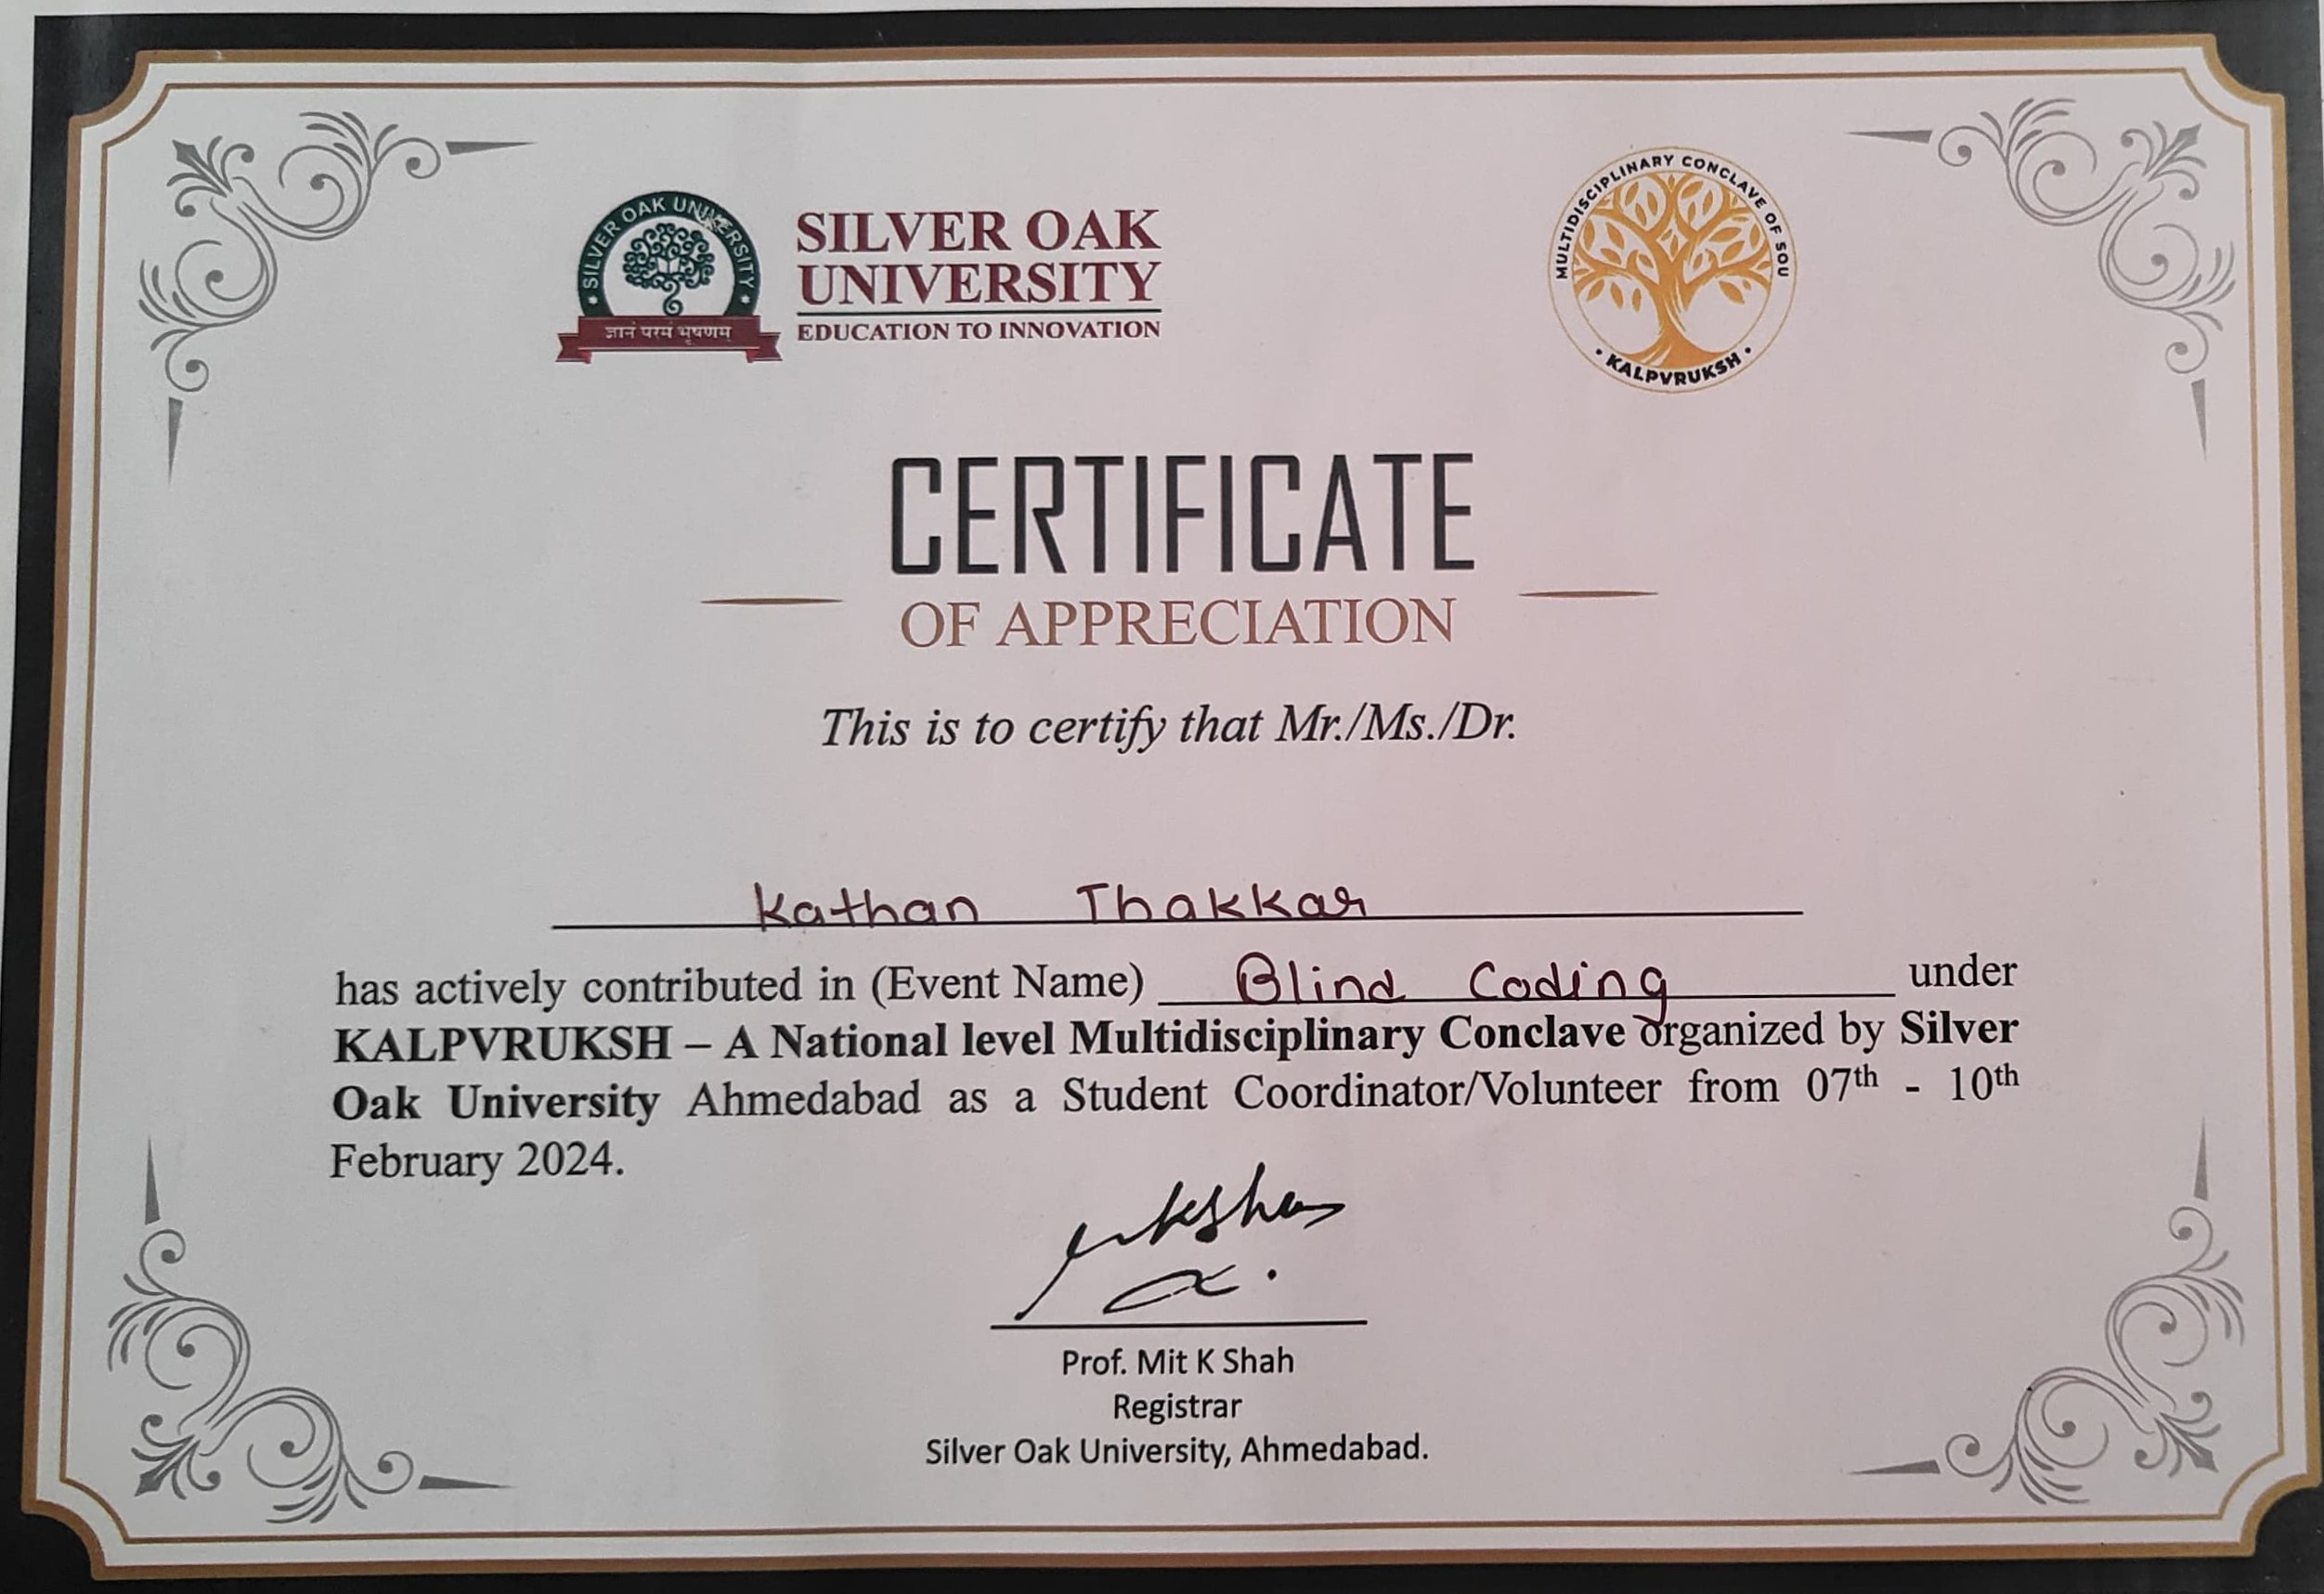 SILVER OAK UNIVERSITY
ज्ञानं परमं भूषणम्
SILVER OAK
UNIVERSITY
EDUCATION TO INNOVATION
MULTIDISCIPLINARY CONCLAVE OF SOU
• KALPVRUKSH •
CERTIFICATE
OF APPRECIATION
This is to certify that Mr./Ms./Dr.
Kathan Thakkar
has actively contributed in (Event Name) Blind Coding under
KALPVRUKSH – A National level Multidisciplinary Conclave organized by Silver
Oak University Ahmedabad as a Student Coordinator/Volunteer from 07th - 10th
February 2024.
Prof. Mit K Shah
Registrar
Silver Oak University, Ahmedabad.